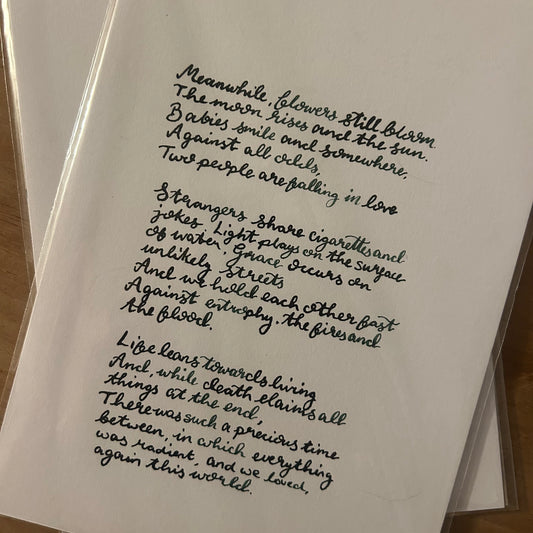 Meanwhile, flowers still bloom
The moon rises and the sun.
Babies smile and somewhere,
Against all odds,
Two people are falling in love
Strangers share cigarettes and
jokes. Light plays on the surface
of water. Grace occurs on
unlikely streets
And we hold each other fast
Against entrophy, the fires and
the flood.
Life leans towards living
And, while death claims all
things at the end,
There was such a precious time
between, in which everything
was radient, and we loved,
again this world.